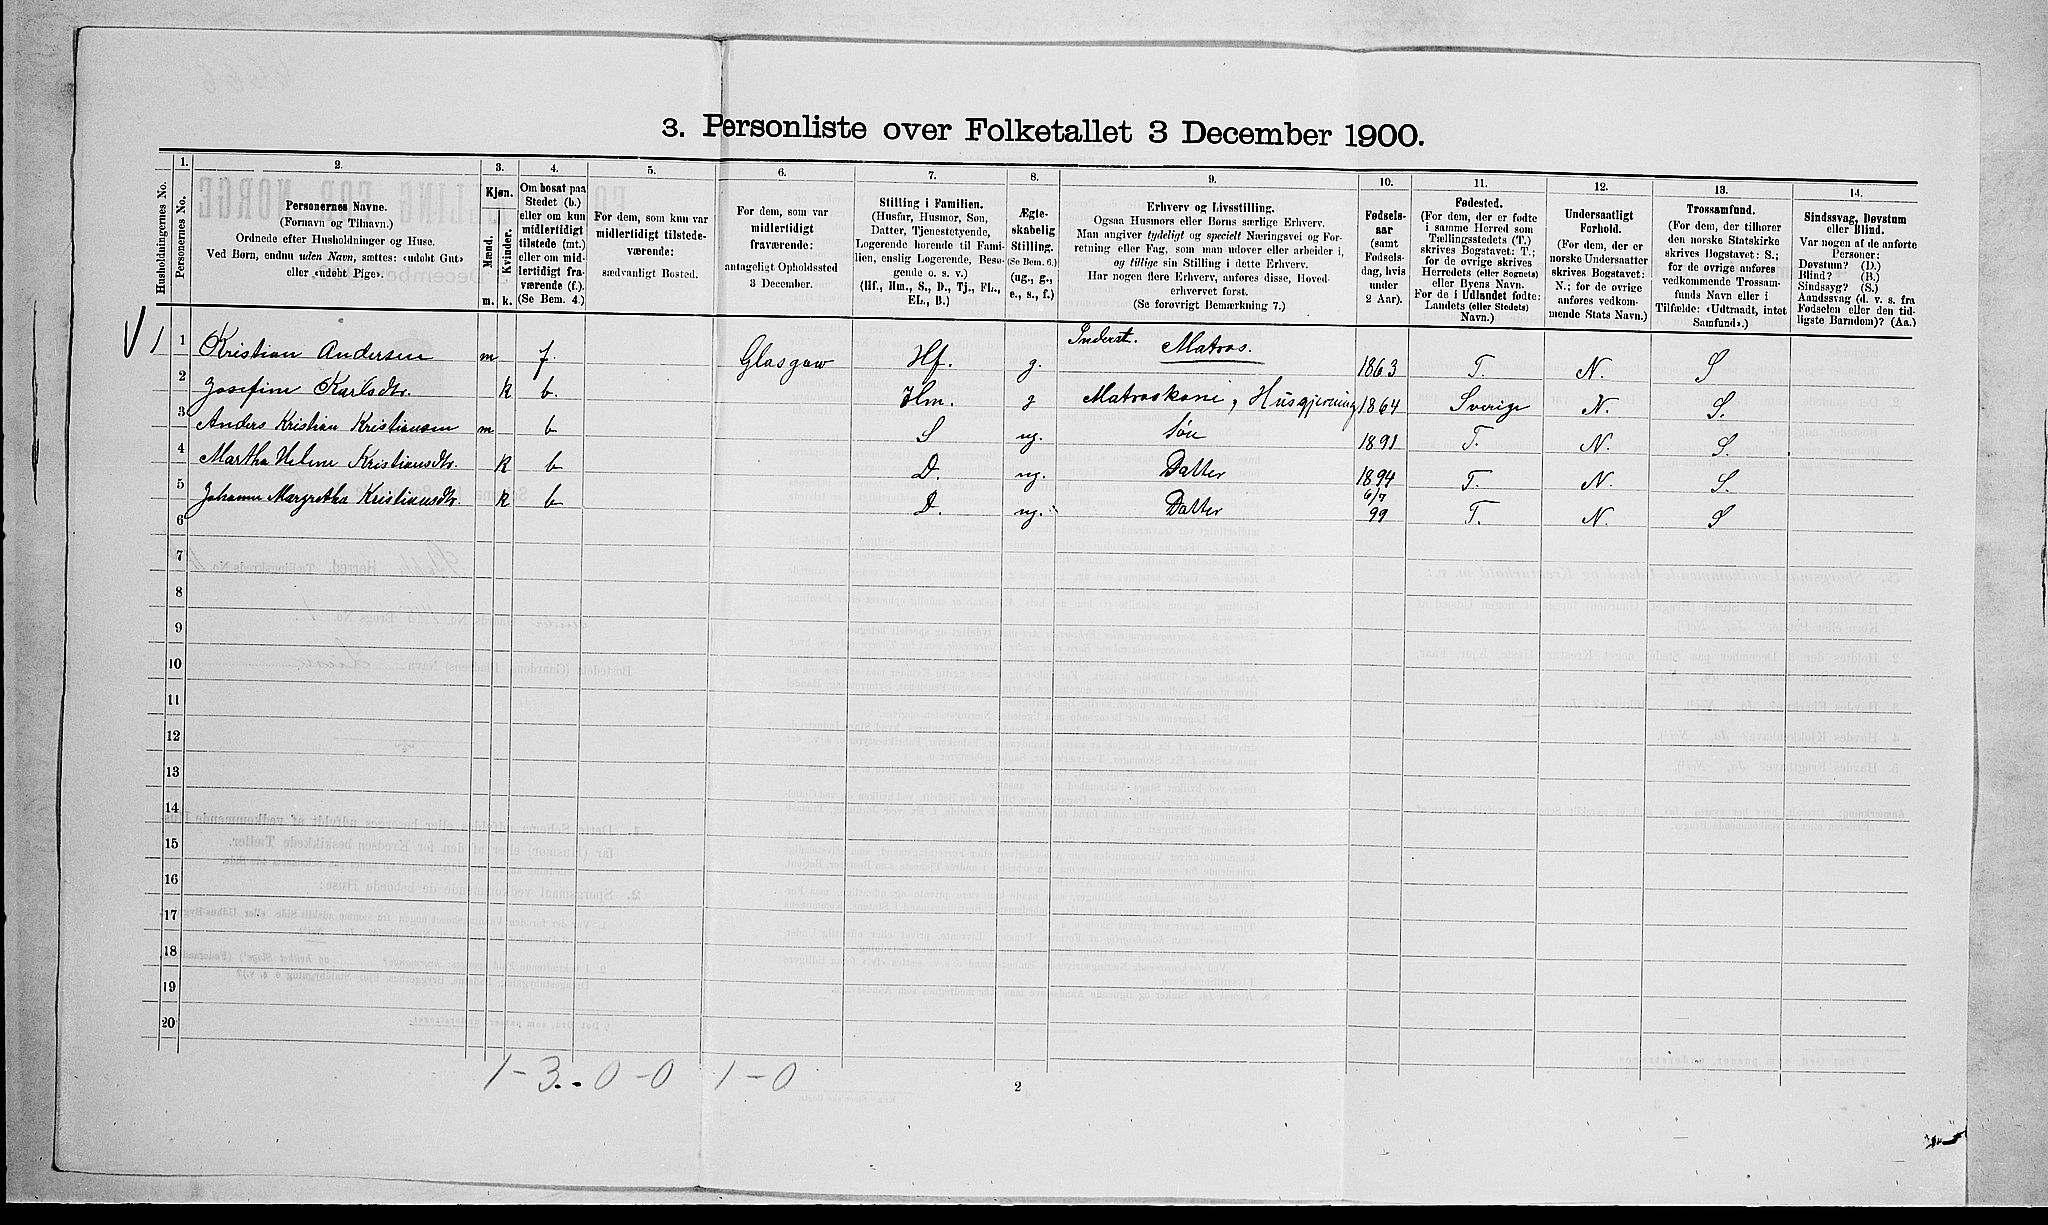 3. Personliste over Folketallet 3 December 1900.
Husholdningernes No.
1.
Personernes No.
2.
Personernes Navne.
(Fornavn og Tilnavn.)
Ordnede efter Husholdninger og Huse.
Ved Børn, endnu uden Navn, sættes: «udøbt Gut»
eller «udøbt Pige».
3.
Kjøn.
Mænd. Kvinder.
m. k.
4.
Om bosat paa
Stedet (b.)
eller om kun
midlertidigt
tilstede (mt.)
eller om mid-
lertidigt fra-
værende (f.).
(Se Bem. 4.)
5.
For dem, som kun var
midlertidigt tilstede-
værende:
sædvanligt Bosted.
6.
For dem, som var
midlertidigt
fraværende:
antageligt Opholdssted
3 December.
7.
Stilling i Familien.
(Husfar, Husmor, Søn,
Datter, Tjenestetyende,
Logerende hørende til Fami-
lien, enslig Logerende, Besø-
gende o. s. v.)
(Hf., Hm., S., D., Tj., FL.,
EL., B.)
8.
Ægte-
skabelig
Stilling.
(Se Bem. 6.)
(ug., g.,
e., s., f.)
9.
Erhverv og Livsstilling.
Ogsaa Husmors eller Børns særlige Erhverv.
Man angiver tydeligt og specielt Næringsvei og For-
retning eller Fag, som man udøver eller arbeider i,
og tillige sin Stilling i dette Erhverv.
Har nogen flere Erhverv, anføres disse, Hoved-
erhvervet først.
(Se forøvrigt Bemærkning 7.)
10.
Fødsels-
aar
(samt
Fødsels-
dag, hvis
under
2 Aar).
11.
Fødested.
(For dem, der er fødte
i samme Herred som
Tællingsstedets (T.)
skrives Bogstavet: T.;
for de øvrige skrives
Herredets (eller Sognets)
eller Byens Navn.
For de i Udlandet fødte:
Landets (eller Stedets)
Navn.)
12.
Undersaatligt
Forhold.
(For dem, der er
norske Undersaatter
skrives Bogstavet:
N.; for de øvrige
anføres vedkom-
mende Stats Navn.)
13.
Trossamfund.
(For dem, der tilhører
den norske Statskirke
skrives Bogstavet: S.;
for de øvrige anføres
vedkommende Trossam-
funds Navn eller i
Tilfælde: «Udtraadt, intet
Samfund».)
14.
Sindssvag, Døvstum
eller Blind.
Var nogen af de anførte
Personer:
Døvstum? (D.)
Blind? (B.)
Sindssyg? (S.)
Aandssvag (d. v. s. fra
Fødselen eller den tid-
ligste Barndom)? (Aa.)
V 1 1 Kristian Andersen m f. Glasgow Hf. g. Inderst. Matros. 1863 T. N. S
2 Josefine Karlsdtr. k b. Hm. g Matroskone, Husgjerning 1864 Sverige N. S.
3 Anders Kristian Kristiansen m b S ug. Søn 1891 T. N. S.
4 Martha Helene Kristiansdtr. k b D. ug. Datter 1894 T. N. S.
5 Johanne Margretha Kristiansdtr. k b D. ug. Datter 6/7 99 T. N. S
6
7
8
9
10
11
12
13
14
15
16
17
18
19
20
1 - 3. - 0 - 0 1 - 0
2